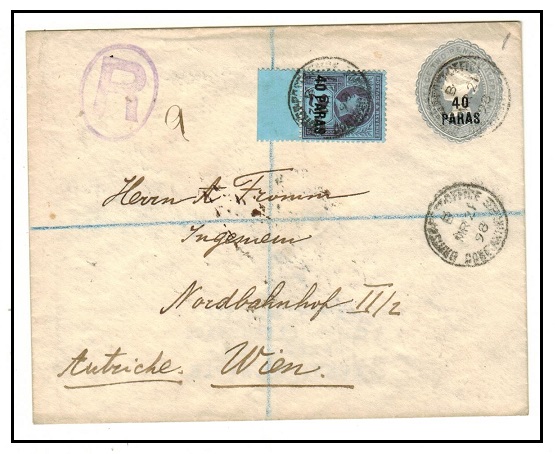 R
40 PARAS
40
PARAS
Herrn A Fromm
Ingenieur
Nordbahnhof II/2
Autriche. Wien.
BRITISH POST OFFICE
B
98